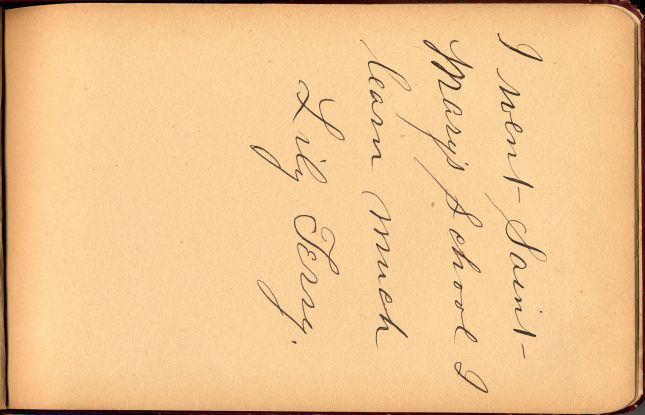 I went Saint
Mary's School I
learn much
Lily Terry.